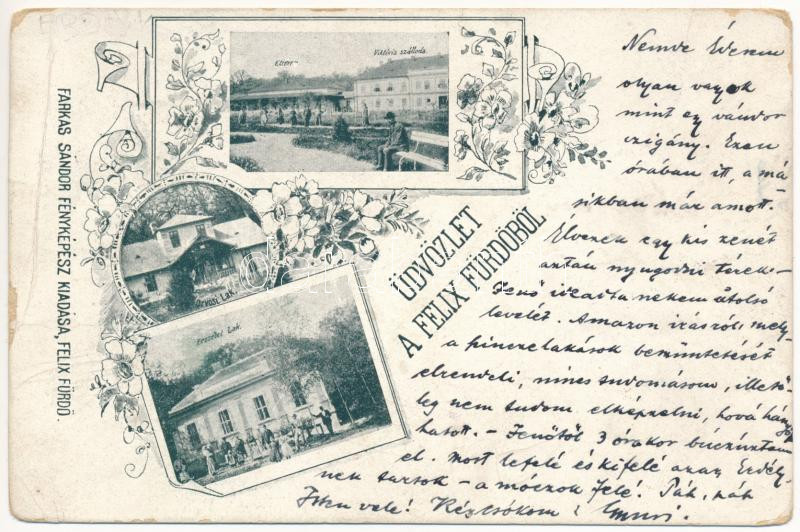 FARKAS SÁNDOR FÉNYKÉPÉSZ KIADÁSA, FELIX FÜRDŐ.
Étterem
Viktória szálloda
Orvosi Lak.
Erzsébet Lak.
ÜDVÖZLET
A FELIX FÜRDŐBŐL
olyan vagyok
mint egy vándor
czigány. Ezen
órában itt, a má
sikban már amott.
Élvezek egy kis zenét
aztán nyugodni térek.
nekem utolsó
levelét. Amazon irásról mely
a pinczelakások beszüntetését
elrendeli, nincs tudomásom, illető
leg nem tudom elképzelni, hová
hatott. - Jenőtől 3 órakor búcsúztam
el. most lefelé és kifelé azaz Erdély
nek tartok - a móczok felé. Páh, páh
Isten vele! Kézcsókom